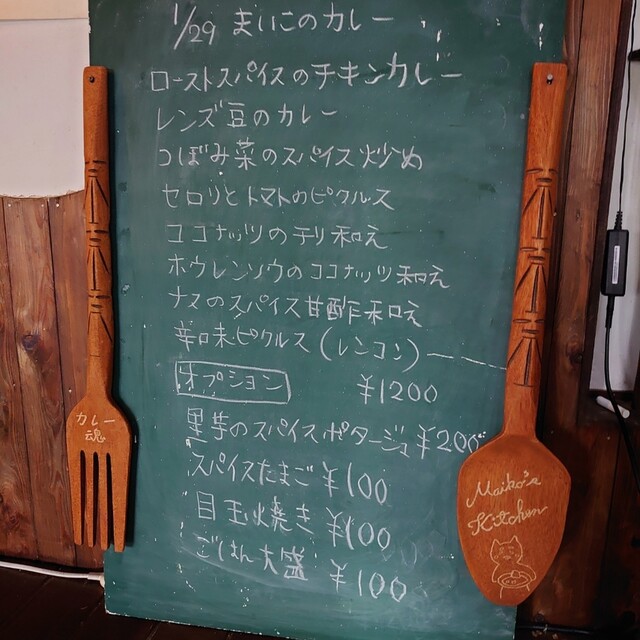 1/29 まいこのカレー
ローストスパイスのチキンカレー
レンズ豆のカレー
つぼみ菜のスパイス炒め
セロリとトマトのピクルス
ココナッツのチリ和え
ホウレンソウのココナッツ和え
ナスのスパイス甘酢和え
辛口味ピクルス(レンコン)
オプション ¥1200
里芋のスパイスポタージュ ¥200
スパイスたまご ¥100
目玉焼き ¥100
ごはん大盛 ¥100
カレー
魂
Maiko's
Kitchen